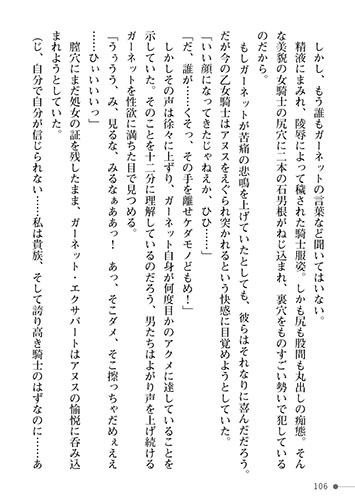 しかし、もう誰もガーネットの言葉など聞いてはいない。
精液にまみれ、陵辱によって穢された騎士服姿。しかも尻も股間も丸出しの痴態。そん
な美貌の女騎士の尻穴に二本の石男根がねじ込まれ、裏穴をものすごい勢いで犯している
のだから。
もしガーネットが苦痛の悲鳴を上げていたとしても、彼らはそれなりに喜んだだろう。
だが今の乙女騎士はアヌスをえぐられ突かれるという快感に目覚めようとしていた。
「いい顔になってきたじゃねえか、ひひ……」
「だ、誰が……くそっ、その手を離せケダモノどもめ！」
しかしその声は徐々に上ずり、ガーネット自身が何度目かのアクメに達していることを
示していた。そのことを十二分に理解しているのだろう、男たちはよがり声を上げ続ける
ガーネットを性欲に満ちた目で見つめる。
「うぅうう、み、見るな、みるなぁああっ！　あっ、そこダメ、そこ擦っちゃだめぇええ
……ひぃいいいっ」
膣穴にまだ処女の証を残したまま、ガーネット・エクサバートはアヌスの愉悦に呑み込
まれようとしていた。
（じ、自分で自分が信じられない……私は貴族、そして誇り高き騎士のはずなのに……あ
106